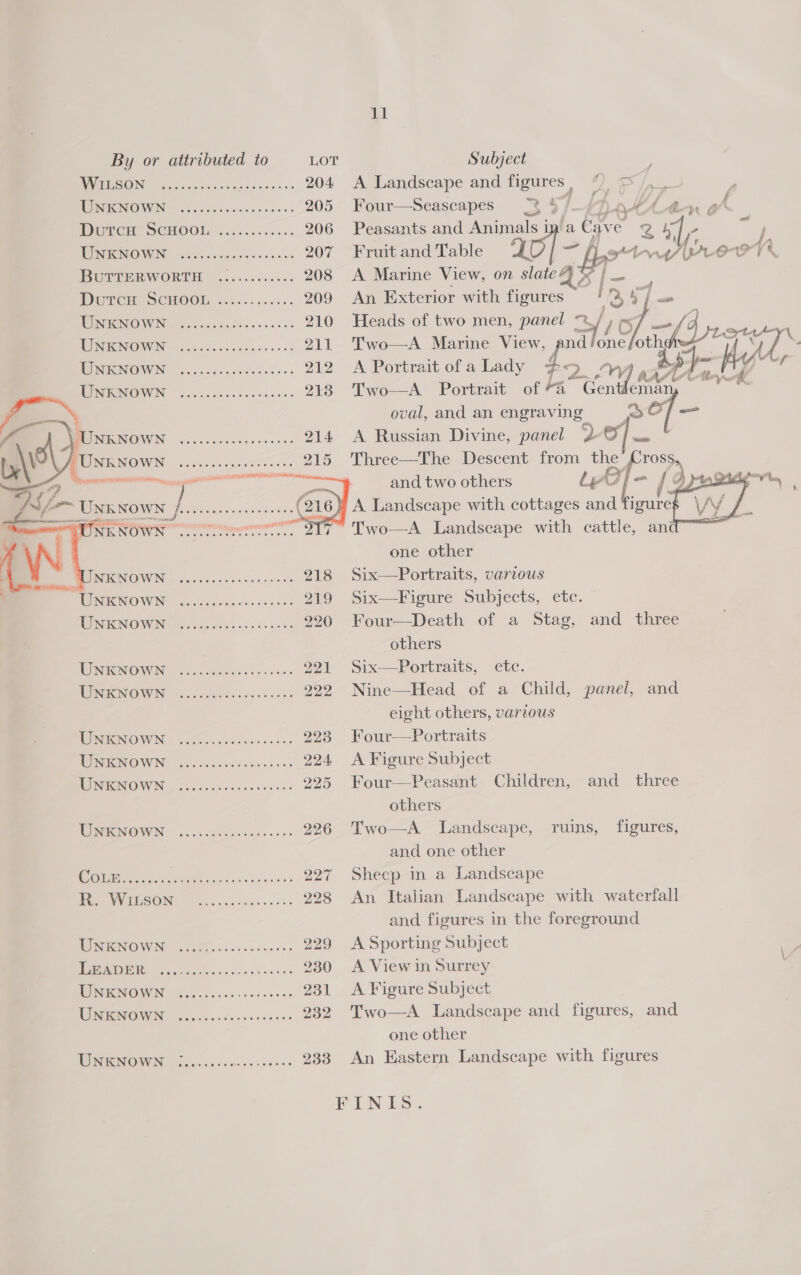 11
By or attributed to LOT Subject
WILSON ........................ 204 A Landscape and figures
UNKNOWN ..................... 205 Four—Seascapes
DUTCH SCHOOL ............. 206 Peasants and Animals in a Cave
UNKNOWN ..................... 207 Fruit and Table
BUTTERWORTH ............. 208 A Marine View, on slate
DUTCH SCHOOL ............. 209 An Exterior with figures
UNKNOWN ..................... 210 Heads of two men, panel
UNKNOWN ..................... 211 Two—A Marine View, and one other
UNKNOWN ..................... 212 A Portrait of a Lady
UNKNOWN ..................... 213 Two—A Portrait of a Gentleman,
oval, and an engraving
UNKNOWN ..................... 214 A Russian Divine, panel
UNKNOWN ..................... 215 Three—The Descent from the Cross,
and two others
UNKNOWN ..................... 216 A Landscape with cottages and figures
UNKNOWN ..................... 217 Two—A Landscape with cattle, and
one other
UNKNOWN ..................... 218 Six—Portraits, various
UNKNOWN ..................... 219 Six—Figure Subjects, etc.
UNKNOWN ..................... 220 Four—Death of a Stag, and three
others
UNKNOWN ..................... 221 Six—Portraits, etc.
UNKNOWN ..................... 222 Nine—Head of a Child, panel, and
eight others, various
UNKNOWN ..................... 223 Four—Portraits
UNKNOWN ..................... 224 A Figure Subject
UNKNOWN ..................... 225 Four—Peasant Children, and three
others
UNKNOWN ..................... 226 Two—A Landscape, ruins, figures,
and one other
COLE ........................... 227 Sheep in a Landscape
R. WILSON ................... 228 An Italian Landscape with waterfall
and figures in the foreground
UNKNOWN ..................... 229 A Sporting Subject
LEADER ........................ 230 A View in Surrey
UNKNOWN ..................... 231 A Figure Subject
UNKNOWN ..................... 232 Two—A Landscape and figures, and
one other
UNKNOWN ..................... 233 An Eastern Landscape with figures
FINIS.